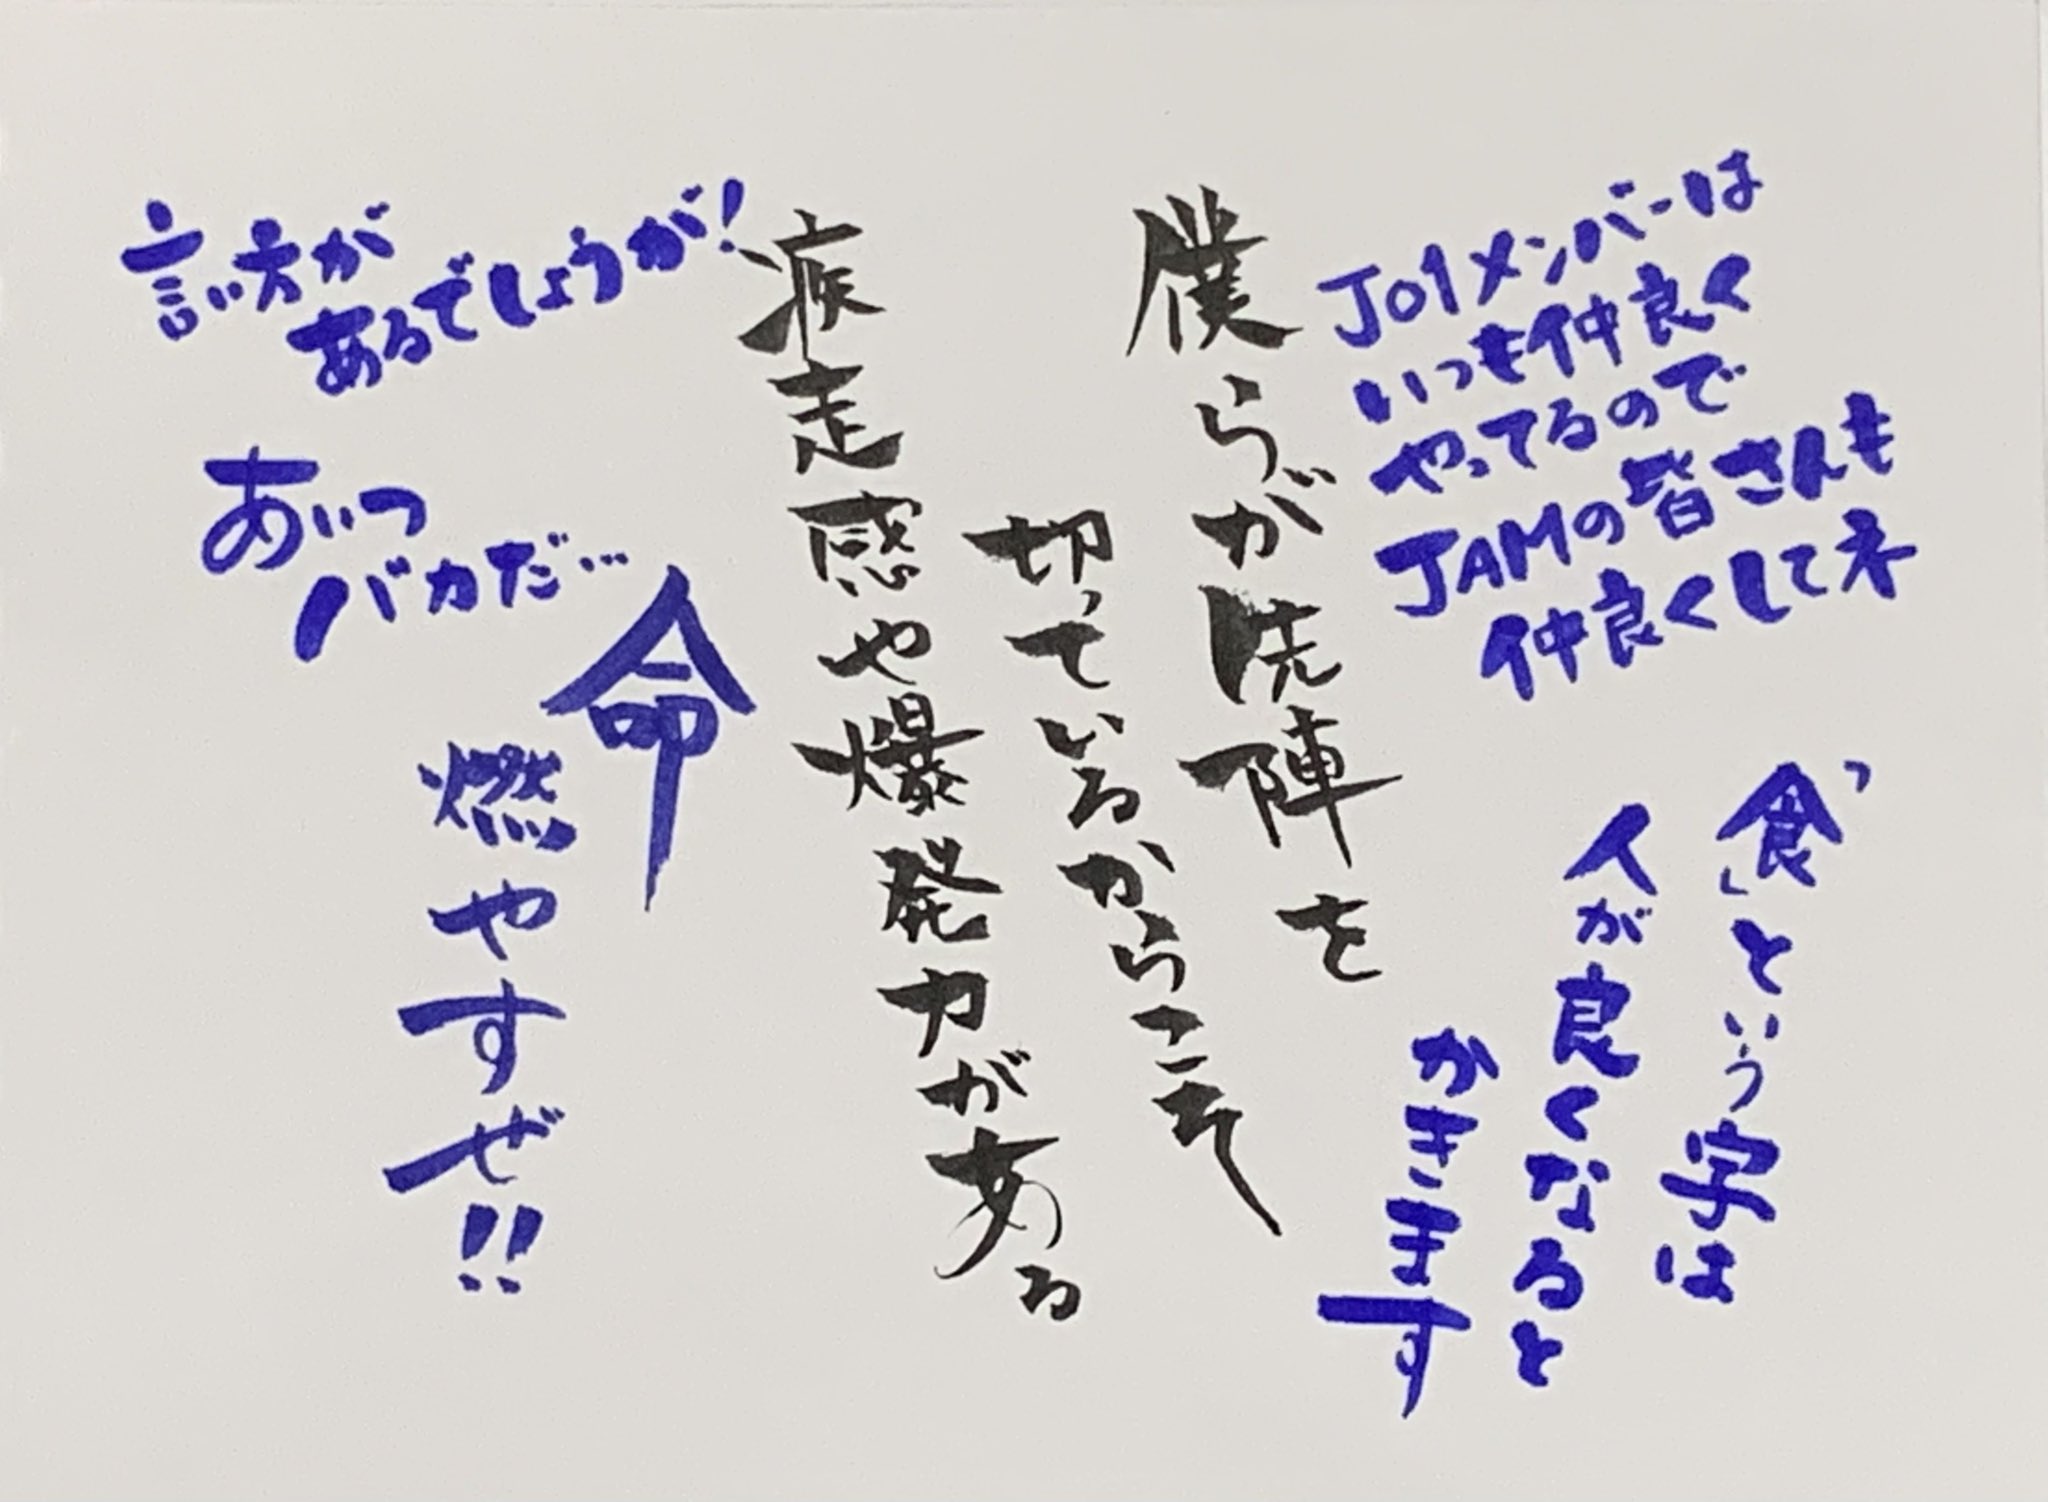 JO1メンバーは
いつも仲良く
やってるので
JAMの皆さんも
仲良くしてネ
「食」という字は
人が良くなると
かきます
僕らが先陣を
切っているからこそ
疾走感や爆発力がある
言い方が
あるでしょうが!
あいつ
バカだ…
命
燃やすぜ!!